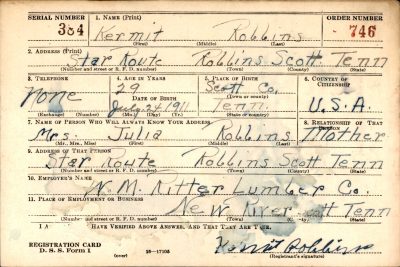 SERIAL NUMBER 1. NAME (Print) ORDER NUMBER
384 Kermit Robbins 746
(First) (Middle) (Last)
2. ADDRESS (Print)
Star Route Robbins Scott Tenn
(Number and street or R. F. D. number) (Town) (County) (State)
3. TELEPHONE 4. AGE IN YEARS 5. PLACE OF BIRTH 6. COUNTRY OF CITIZENSHIP
none 29 Scott Co.
DATE OF BIRTH (Town or county)
July 24 1911 Tenn. U.S.A.
(Exchange) (Number) (Mo.) (Day) (Yr.) (State or country)
7. NAME OF PERSON WHO WILL ALWAYS KNOW YOUR ADDRESS 8. RELATIONSHIP OF THAT PERSON
Mrs. Julia Robbins Mother
(Mr., Mrs., Miss) (First) (Middle) (Last)
9. ADDRESS OF THAT PERSON
Star Route Robbins Scott Tenn
(Number and street or R. F. D. number) (Town) (County) (State)
10. EMPLOYER'S NAME
W. M. Ritter Lumber Co.
11. PLACE OF EMPLOYMENT OR BUSINESS
New River Scott Tenn
(Number and street or R. F. D. number) (Town) (County) (State)
I HAVE VERIFIED ABOVE ANSWERS, AND THAT THEY ARE TRUE.
REGISTRATION CARD
D. S. S. Form 1 (over) 16—17105 Kermit Robbins
(Registrant's signature)